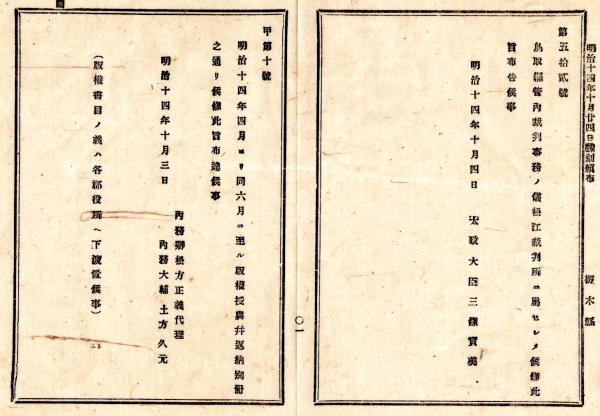 明治十四年十月廿四日飜刻頒布
栃木縣
第五拾貳號
鳥取縣管內裁判事務ノ儀松江裁判所ニ屬セシメ候條此
旨布告候事
明治十四年十月四日
太政大臣三條實美
〇一
甲第十號
明治十四年四月ヨリ同六月ニ至ル版權授與幷返納別冊
之通リ候條此旨布達候事
明治十四年十月三日
內務卿松方正義代理
內務大輔土方久元
（版權書目ノ義ハ各郡役所ヘ下渡置候事）